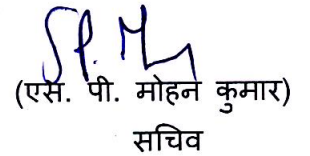 (एस. पी. मोहन कुमार)
सचिव